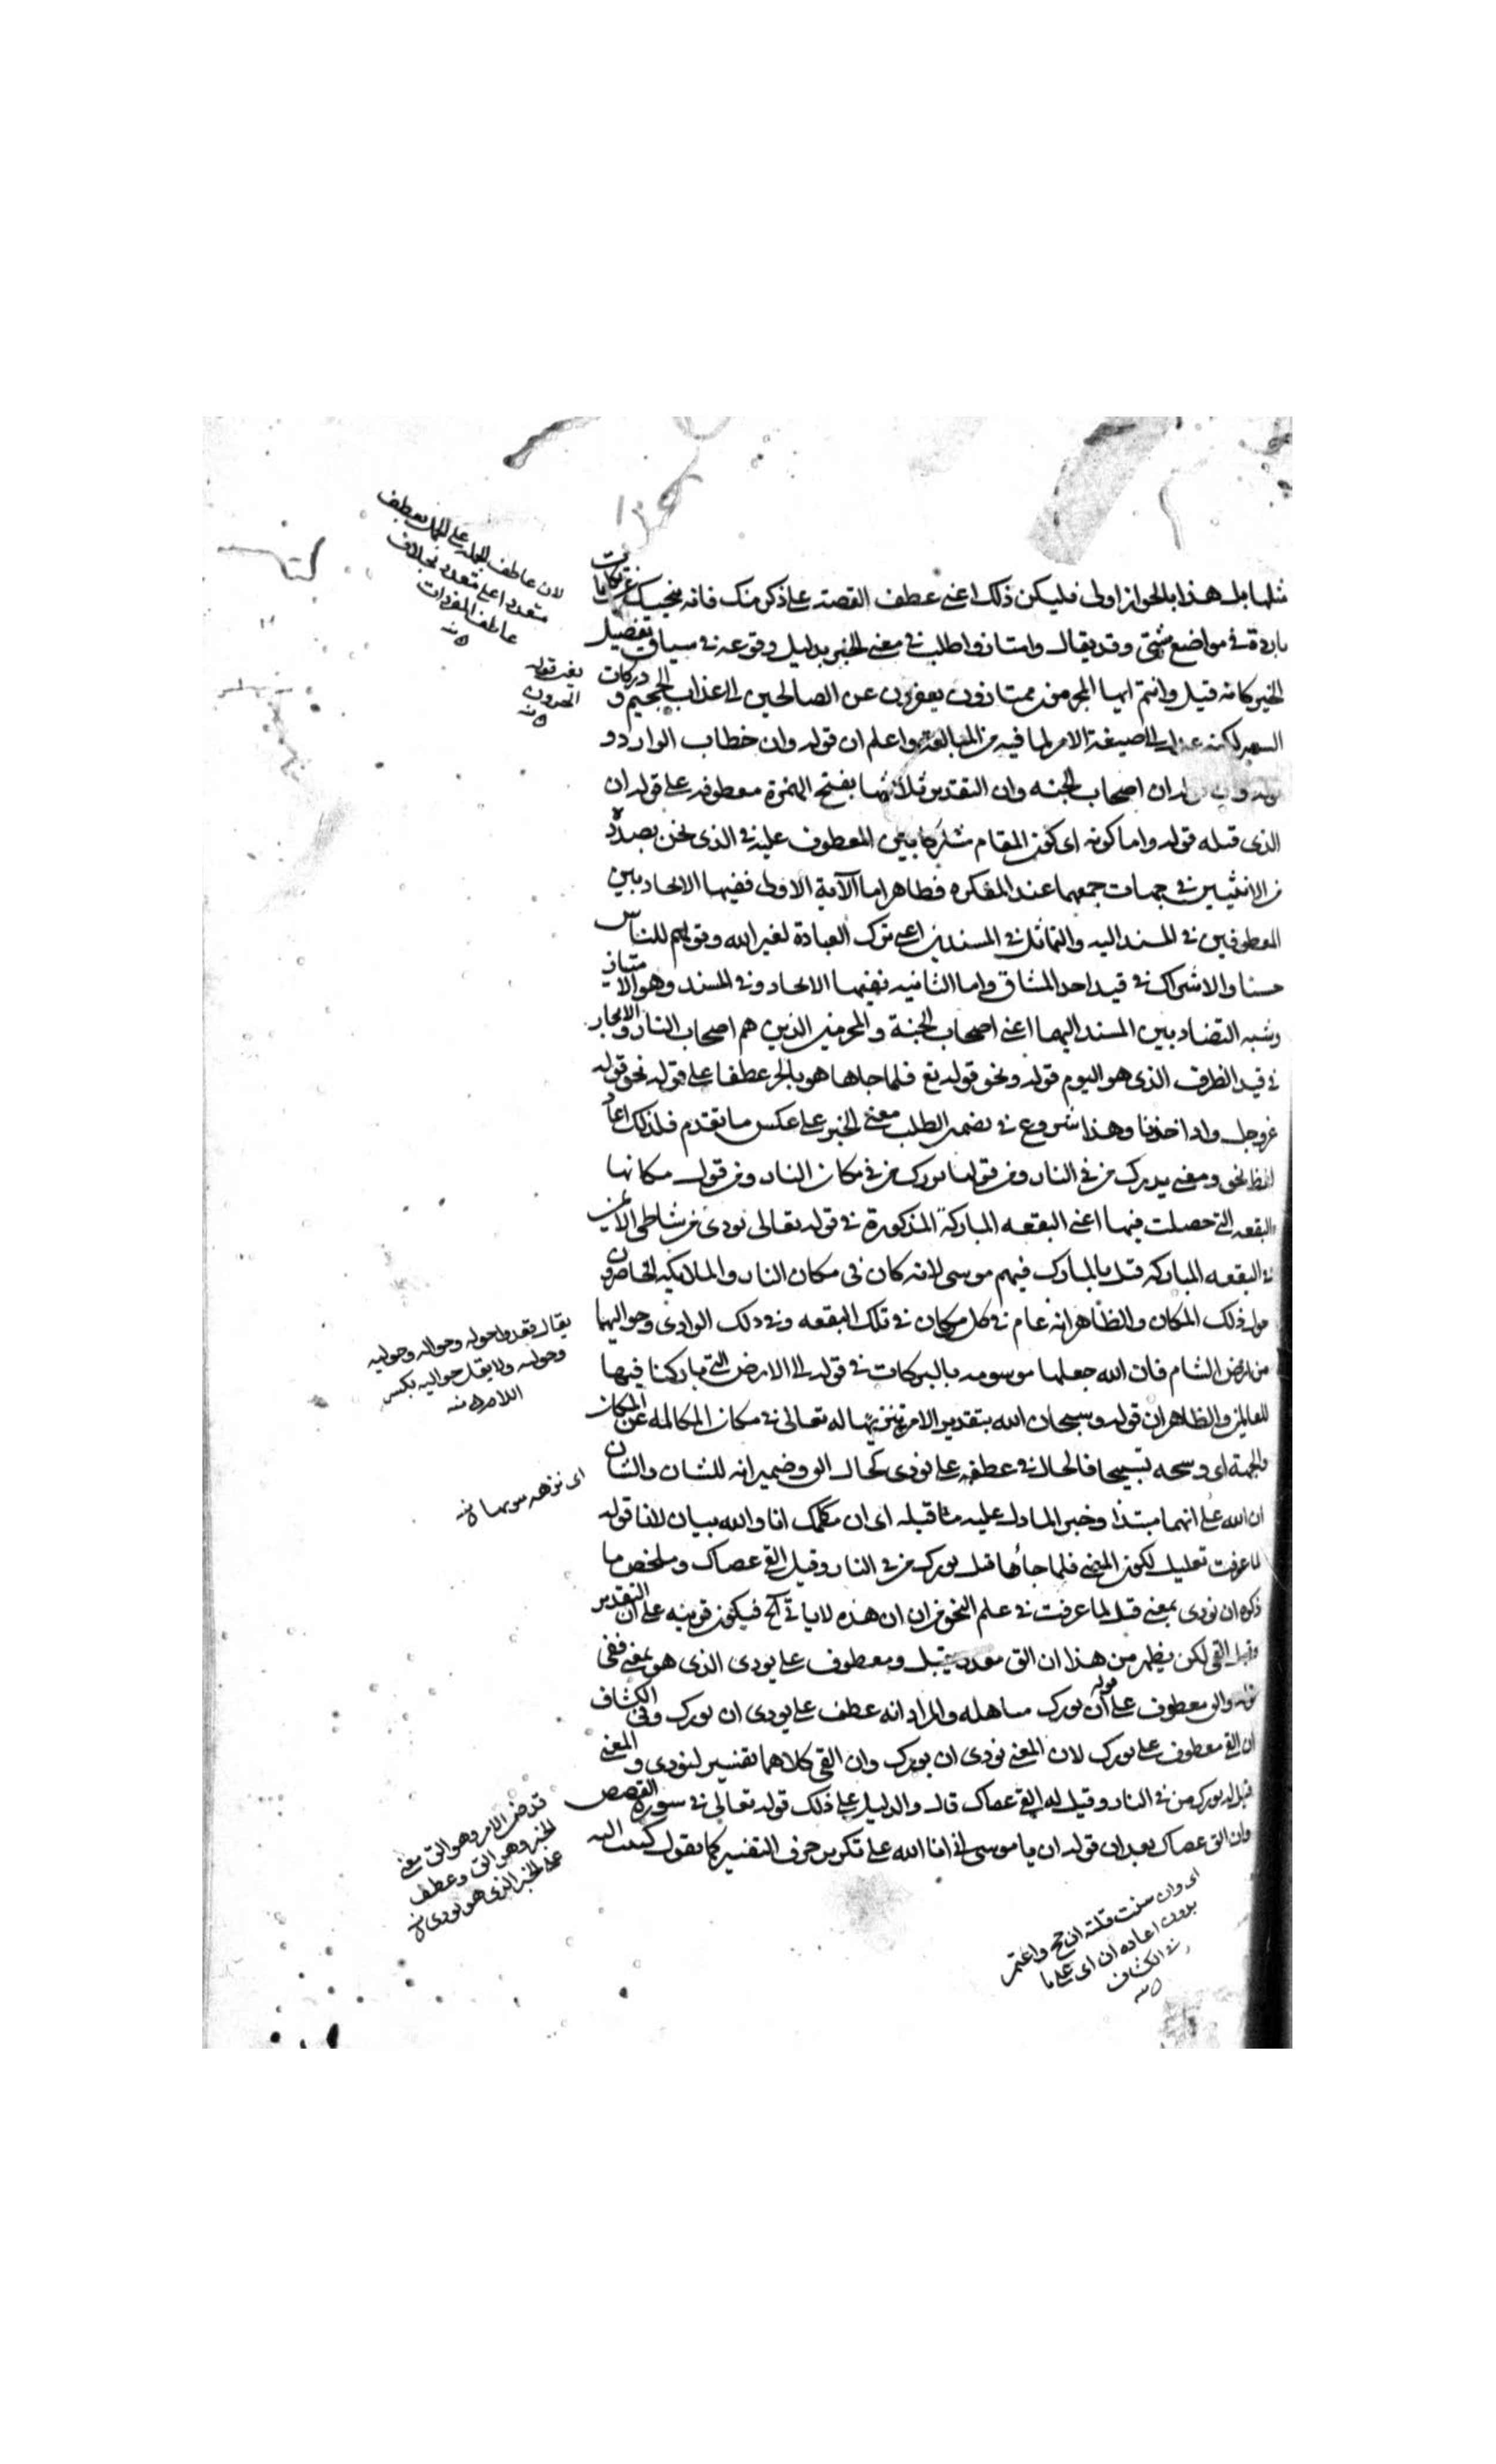 مثلها بل هذا بالجواز اولى فليكن ذلك اعنى عطف القصة على ذكر منك فانه ينجيك عن تكلفات
باردة فى مواضع شتى وقد يقال وامتازوا طلب فى معنى الخبر بدليل وقوعه فى سياق تفصيل
الخبر كانه قيل وانتم ايها المجرمون ممتازون عن الصالحين الى عذاب الجحيم و دركات
السعير لكنه عدل الى صيغة الامر لما فيه من المبالغة واعلم ان قوله وان خطاب الوارد و
ان اصحاب الجنه وان التقدير ثلاثتها بفتح الهمزة معطوفه على قوله ان
الذى قبله قوله واما كونه اى كون المقام مشتركا بين المعطوف عليه فى الذى نحن بصدده
من الاثنيين فى جهات جمعهما عند المفكره فظاهر اما الآية الاولى ففيها الاتحاد بين
المعطوفين فى المسند اليه والتماثل فى المسندين اعنى ترك العبادة لغير الله وقولهم للناس
حسنا والاشتراك فى قيد احد المشاق واما الثانيه ففيها الاتحاد فى المسند وهو الامتياز
وشبه التضاد بين المسند اليهما اعنى اصحاب الجنة والمجرمين الذين هم اصحاب النار والاتحاد
فى قيد الظرف الذى هو اليوم قوله ونحو قوله تع فلما جاها هو بالجر عطفا على قوله نحو قوله
عز وجل واذ اخذنا وهذا شروع فى تضمين الطلب معنى الخبر على عكس ما تقدم فلذلك اعاد
لفظ نحو ومعنى بورك من فى النار ومن حولها بورك من فى مكان النار ومن حول مكانها
والبقعه التى حصلت فيها اعنى البقعه المباركة المذكورة فى قوله تعالى نودى من شاطى الايمن
فى البقعه المباركه قيل المبارك فيهم موسى لانه كان فى مكان النار والملائكه الحاضرون
حول ذلك المكان والظاهر انه عام فى كل من كان فى تلك البقعه وفى ذلك الوادى وحواليهما
من ارض الشام فان الله جعلها موسومه بالبركات فى قوله الى الارض التى باركنا فيها
للعالمين والظاهر ان قوله وسبحان الله بتقدير الامر تنزيها له تعالى فى مكان المكالمه عن المكان
والجهة اى وسبحه تسبيحا فالحال فى عطفه على نودى كحال الق وضمير انه للشان والشان
ان الله على انهما مبتدا وخبر لما دل عليه ما قبله اى ان مكلمك انا والله بيان لانا قوله
لما عرفت تعليل لكون المعنى فلما جاءها قيل بورك من فى النار وقيل الق عصاك وملخص ما
ذكره ان نودى بمعنى قيل لما عرفت فى علم النحو من ان ان هذه لا ياتى فيكون قرينه على ان التقدير
وقيل الق لكن يظهر من هذا ان الق معطوف على نودى الذى هو بمعنى ففى
قوله والق معطوف على قوله ان بورك مساهله والمراد انه عطف على نودى ان بورك وفى الكشاف
ان الق معطوف على بورك لان المعنى نودى ان بورك وان الق كلاهما تفسير لنودى والمعنى
قيل له بورك من فى النار وقيل له الق عصاك قال والدليل على ذلك قوله تعالى فى سورة القصص
وان الق عصاك بعد ان قوله ان يا موسى انى انا الله على تكرير حرف التفسير كما تقول كتبت اليه
لان عاطف الجمله على الجمل يعطف
متعددا على متعدد بخلاف
عاطف المفردات
منه
يعنى قوله
المجرمون
منه
يقال قعدوا حوله وحواله وحوليه
وحواليه ولا يقال حواليه بكسر
اللام منه
اى نزهه تنزيها منه
قد ضمن الامر وهو الق معنى
الخبر وهو القى وعطف
على الخبر الذى هو نودى منه
اى وان شئت قلت ان حج واعتمر
بدون اعاده ان اى على ما
فى الكشاف
منه